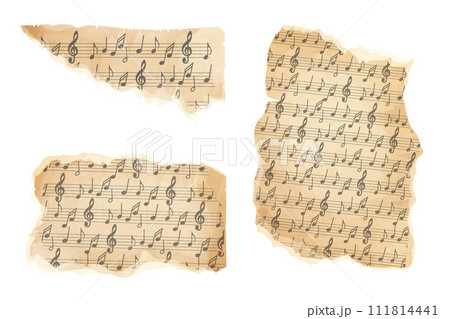 PIXTA
pixta.jp - 111814441